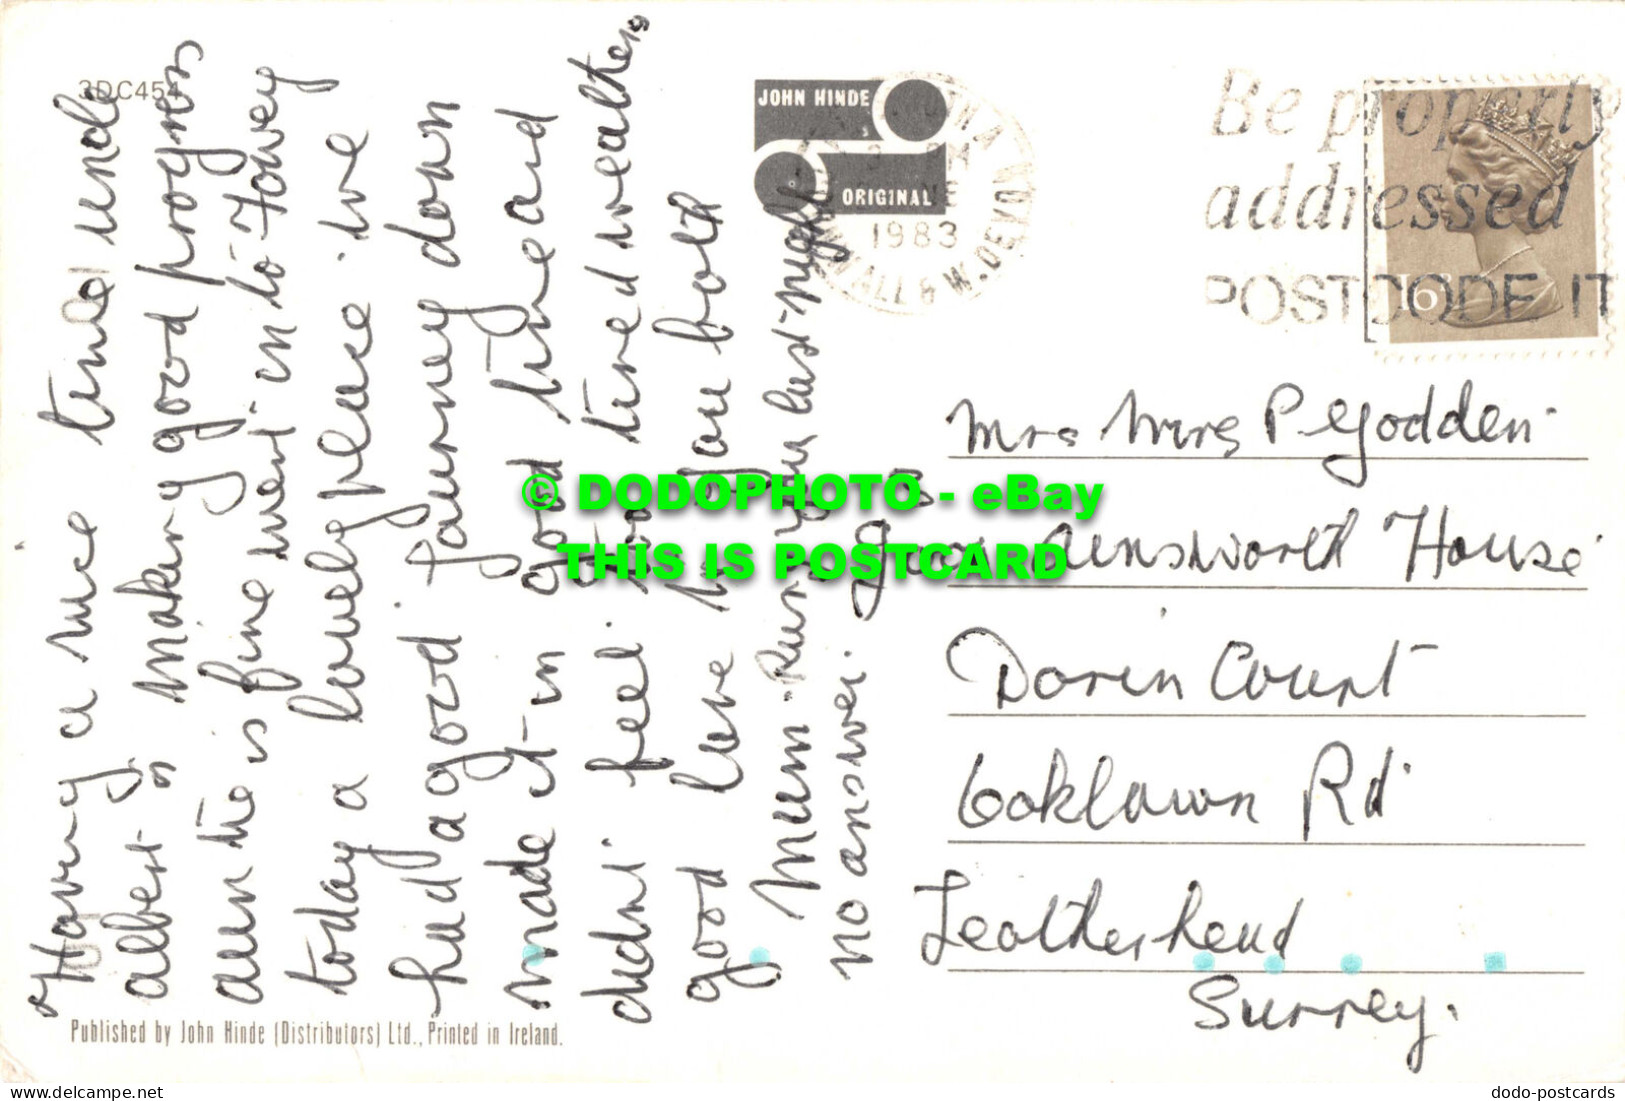 3DC454
Having a nice time uncle
albert is making good progress
aun tie is fine went in to Fowey
today a lovely place we
had a good journey down
made it in good time and
didnt feel to tired weather
good love to you both
Mum. Rung you last night
no answer.
JOHN HINDE
ORIGINAL
1983
CORNWALL & W. DEVON
Be properly
addressed
POSTCODE IT
16
Mrs P Godden
Ainsworth House
Dorin Court
Oaklawn Rd
Leatherhead
Surrey.
© DODOPHOTO - eBay
THIS IS POSTCARD
Published by John Hinde (Distributors) Ltd., Printed in Ireland.
www.delcampe.net
dodo-postcards